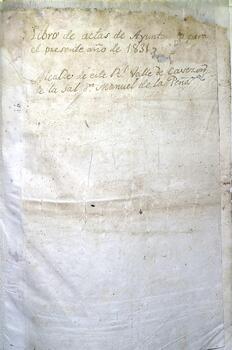 Libro de actas de Ayunto para
el presente año de 1831,,
Alcalde de este Rl Valle de Cavezon
de la Sal Dn Manuel de la Peña